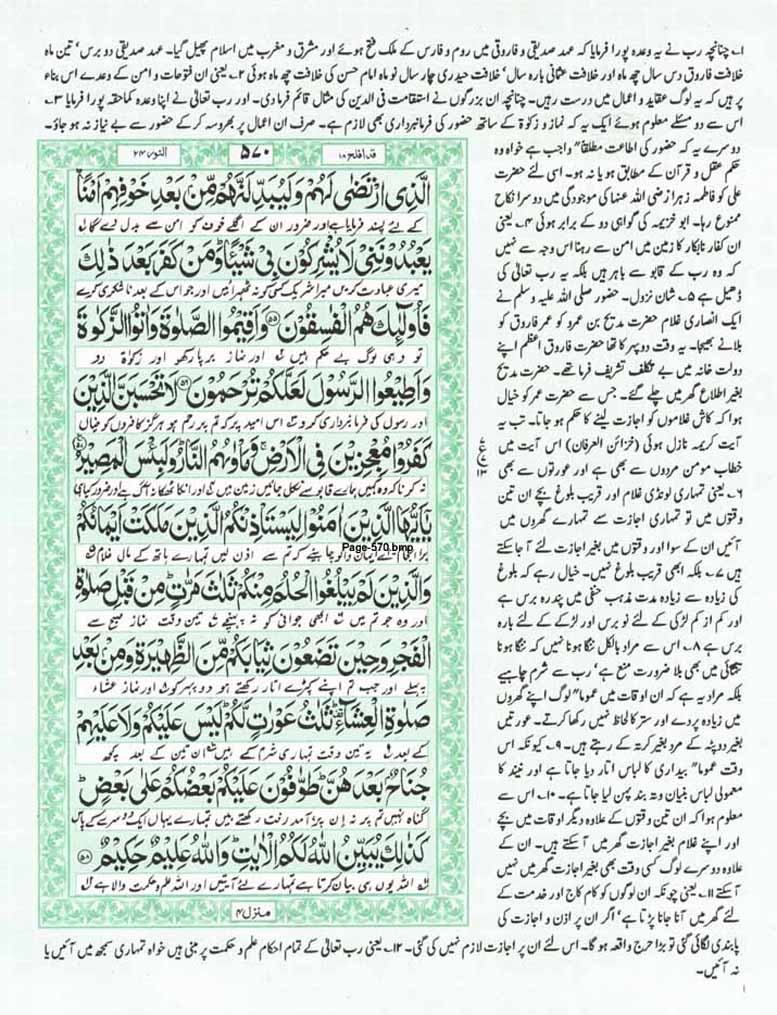 ۱؎ چنانچہ رب نے یہ وعدہ پورا فرمایا کہ عہد صدیقی و فاروقی میں روم و فارس کے ملک فتح ہوئے اور مشرق و مغرب میں اسلام پھیل گیا۔ عہد صدیقی دو برس، تین ماہ
خلافت فاروق دس سال چھ ماہ اور خلافت عثمانی بارہ سال، خلافت حیدری چار سال نو ماہ امام حسن کی خلافت چھ ماہ ہوئی ۲؎ یعنی ان فتوحات و امن کے وعدے اس بناء
پر ہیں کہ یہ لوگ عقاید و اعمال میں درست رہیں۔ چنانچہ ان بزرگوں نے استقامت فی الدین کی مثال قائم فرما دی۔ اور رب تعالیٰ نے اپنا وعدہ کماحقہ پورا فرمایا ۳؎
اس سے دو مسئلے معلوم ہوئے ایک یہ کہ نماز و زکوۃ کے ساتھ حضور کی فرمانبرداری بھی لازم ہے۔ صرف ان اعمال پر بھروسہ کر کے حضور سے بے نیاز نہ ہو جاؤ۔
دوسرے یہ کہ حضور کی اطاعت مطلقاً" واجب ہے خواہ وہ
حکم عقل و قرآن کے مطابق ہو یا نہ ہو۔ اسی لئے حضرت
علی کو فاطمہ زہرا رضی اللہ عنہا کی موجودگی میں دوسرا نکاح
ممنوع رہا۔ ابو خزیمہ کی گواہی دو کے برابر ہوئی ۴؎ یعنی
ان کفار نابکار کا زمین میں امن سے رہنا اس وجہ سے نہیں
کہ وہ رب کے قابو سے باہر ہیں بلکہ یہ رب تعالیٰ کی
ڈھیل ہے ۵؎ شان نزول۔ حضور صلی اللہ علیہ و سلم نے
ایک انصاری غلام حضرت مدلج بن عمرو کو عمر فاروق کو
بلانے بھیجا۔ یہ وقت دوپہر کا تھا حضرت فاروق اعظم اپنے
دولت خانہ میں بے تکلف تشریف فرما تھے۔ حضرت مدلج
بغیر اطلاع گھر میں چلے گئے۔ جس سے حضرت عمر کو خیال
ہوا کہ کاش غلاموں کو اجازت لینے کا حکم ہو جاتا۔ تب یہ
آیت کریمہ نازل ہوئی (خزائن العرفان) اس آیت میں
خطاب مومن مردوں سے بھی ہے اور عورتوں سے بھی
۶؎ یعنی تمہاری لونڈی غلام اور قریب بلوغ بچے ان تین
وقتوں میں تو تمہاری اجازت سے تمہارے گھروں میں
آئیں ان کے سوا اور وقتوں میں بغیر اجازت لئے آ جا سکتے
ہیں ۷؎ بلکہ ابھی قریب بلوغ نہیں۔ خیال رہے کہ بلوغ
کی زیادہ سے زیادہ مدت مذہب حنفی میں پندرہ برس ہے
اور کم از کم لڑکی کے لئے نو برس اور لڑکے کے لئے بارہ
برس ہے ۸؎ اس سے مراد بالکل ننگا ہونا نہیں کہ ننگا ہونا
تنہائی میں بھی بلا ضرورت منع ہے، رب سے شرم چاہیے
بلکہ مراد یہ ہے کہ ان اوقات میں عموماً" لوگ اپنے گھروں
میں زیادہ پردے اور ستر کا لحاظ نہیں رکھا کرتے۔ عورتیں
بغیر دوپٹہ کے مرد بغیر کرتہ کے رہتے ہیں۔ ۹؎ کیونکہ اس
وقت عموماً" بیداری کا لباس اتار دیا جاتا ہے اور نیند کا
معمولی لباس بنیان وتہ بند پہن لیا جاتا ہے۔ ۱۰؎ اس سے
معلوم ہوا کہ ان تین وقتوں کے علاوہ دیگر اوقات میں بچے
اور اپنے غلام بغیر اجازت گھر میں آ سکتے ہیں۔ ان کے
علاوہ دوسرے لوگ کسی وقت بھی بغیر اجازت گھر میں نہیں
آ سکتے ۱۱؎ یعنی چونکہ ان لوگوں کو کام کاج اور خدمت کے
لئے گھر میں آنا جانا پڑتا ہے، اگر ان پر اذن و اجازت کی
پابندی لگائی گئی تو بڑا حرج واقعہ ہو گا۔ اس لئے ان پر اجازت لازم نہیں کی گئی۔ ۱۲؎ یعنی رب تعالیٰ کے تمام احکام علم و حکمت پر مبنی ہیں خواہ تمہاری سمجھ میں آئیں یا
نہ آئیں۔
قد افلح ۱۸
۵۷۰
النور ۲۴
الَّذِی ارْتَضٰی لَهُمْ وَلَیُبَدِّلَنَّهُمْ مِّنْۢ بَعْدِ خَوْفِهِمْ اَمْنًا
کے لئے پسند فرمایا ہے اور ضرور ان کے اگلے خوف کو امن سے بدل دے گا
یَعْبُدُوْنَنِیْ لَا یُشْرِكُوْنَ بِیْ شَیْــٴًـا وَمَنْ كَفَرَ بَعْدَ ذٰلِكَ
میری عبادت کریں میرا شریک کسی کو نہ ٹھہرائیں اور جو اس کے بعد ناشکری کرے
فَاُولٰٓىٕكَ هُمُ الْفٰسِقُوْنَ ۵۵ وَاَقِیْمُوا الصَّلٰوةَ وَاٰتُوا الزَّكٰوةَ
تو وہی لوگ بے حکم ہیں اور نماز برپا رکھو اور زکوٰۃ دو
وَاَطِیْعُوا الرَّسُوْلَ لَعَلَّكُمْ تُرْحَمُوْنَ ۵۶ لَا تَحْسَبَنَّ الَّذِیْنَ
اور رسول کی فرمانبرداری کرو اس امید پر کہ تم پر رحم ہو ہرگز کافروں کو خیال
كَفَرُوْا مُعْجِزِیْنَ فِی الْاَرْضِ وَمَاْوٰىهُمُ النَّارُ وَلَبِئْسَ الْمَصِیْرُ ۵۷
نہ کرنا کہ وہ کہیں ہمارے قابو سے نکل جائیں زمین میں اور انکا ٹھکانا آگ ہے اور ضرور کیا ہی
یٰۤاَیُّهَا الَّذِیْنَ اٰمَنُوْا لِیَسْتَاْذِنْكُمُ الَّذِیْنَ مَلَكَتْ اَیْمَانُكُمْ
Page-570.bmp
برا انجام اے ایمان والو چاہئے کہ تم سے اذن لیں تمہارے ہاتھ کے مال غلام
وَالَّذِیْنَ لَمْ یَبْلُغُوا الْحُلُمَ مِنْكُمْ ثَلٰثَ مَرّٰتٍ مِنْ قَبْلِ صَلٰوةِ
اور وہ جو تم میں ابھی جوانی کو نہ پہنچے تین وقت نماز صبح سے
الْفَجْرِ وَحِیْنَ تَضَعُوْنَ ثِیَابَكُمْ مِّنَ الظَّهِیْرَةِ وَمِنْۢ بَعْدِ
پہلے اور جب تم اپنے کپڑے اتار رکھتے ہو دوپہر کو اور نماز عشاء
صَلٰوةِ الْعِشَآءِ ثَلٰثُ عَوْرٰتٍ لَّكُمْ لَیْسَ عَلَیْكُمْ وَلَا عَلَیْهِمْ
کے بعد یہ تین وقت تمہاری شرم کے ہیں ان تین کے بعد کچھ
جُنَاحٌۢ بَعْدَهُنَّ طَوّٰفُوْنَ عَلَیْكُمْ بَعْضُكُمْ عَلٰی بَعْضٍ
گناہ نہیں تم پر نہ ان پر آمد و رفت رکھتے ہیں تمہارے یہاں ایک دوسرے کے پاس
كَذٰلِكَ یُبَیِّنُ اللّٰهُ لَكُمُ الْاٰیٰتِ وَاللّٰهُ عَلِیْمٌ حَكِیْمٌ ۵۸
اللہ یوں ہی بیان کرتا ہے تمہارے لئے آیتیں اور اللہ علم و حکمت والا ہے
منزل ۴